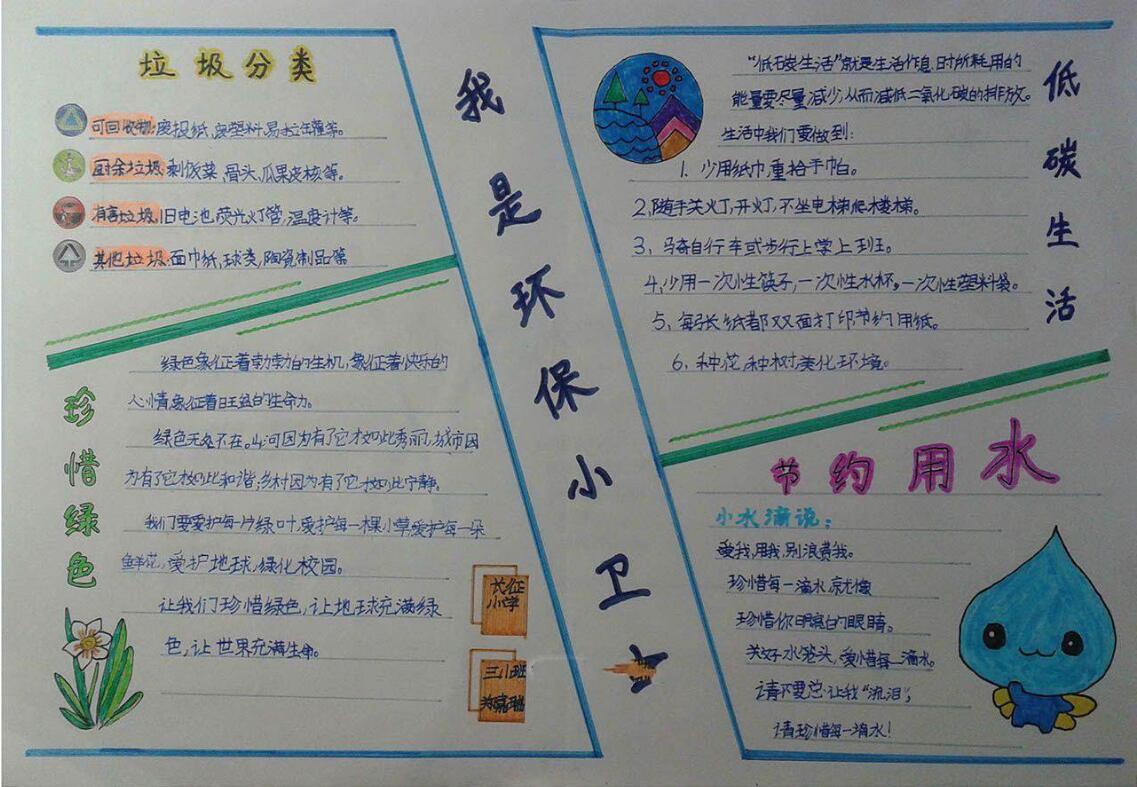 我是环保小卫士
垃圾分类
可回收物:废报纸,废塑料,易拉罐等。
厨余垃圾:剩饭菜,骨头,瓜果皮核等。
有害垃圾:旧电池,荧光灯管,温度计等。
其他垃圾:面巾纸,球类,陶瓷制品等
珍惜绿色
绿色象征着勃勃的生机,象征着快乐的
心情,象征着旺盛的生命力。
绿色无处不在。山河因为有了它才如此秀丽,城市因
为有了它才如此和谐;乡村因为有了它才如此宁静。
我们要爱护每一片绿叶,爱护每一棵小草,爱护每一朵
鲜花,爱护地球,绿化校园。
让我们珍惜绿色,让地球充满绿
色,让世界充满生命。
长征
小学
三八班
低碳生活
“低碳生活”就是生活作息时所耗用的
能量要尽量减少,从而减低二氧化碳的排放。
生活中我们要做到:
1、少用纸巾,重拾手帕。
2、随手关灯,开灯,不坐电梯爬楼梯。
3、骑自行车或步行上学上班。
4、少用一次性筷子,一次性水杯,一次性塑料袋。
5、每张纸都双面打印节约用纸。
6、种花,种树,美化环境。
节约用水
小水滴说:
爱我,用我,别浪费我。
珍惜每一滴水就像
珍惜你明亮的眼睛。
关好水笼头,爱惜每一滴水。
请不要总让我“流泪”,
请珍惜每一滴水!